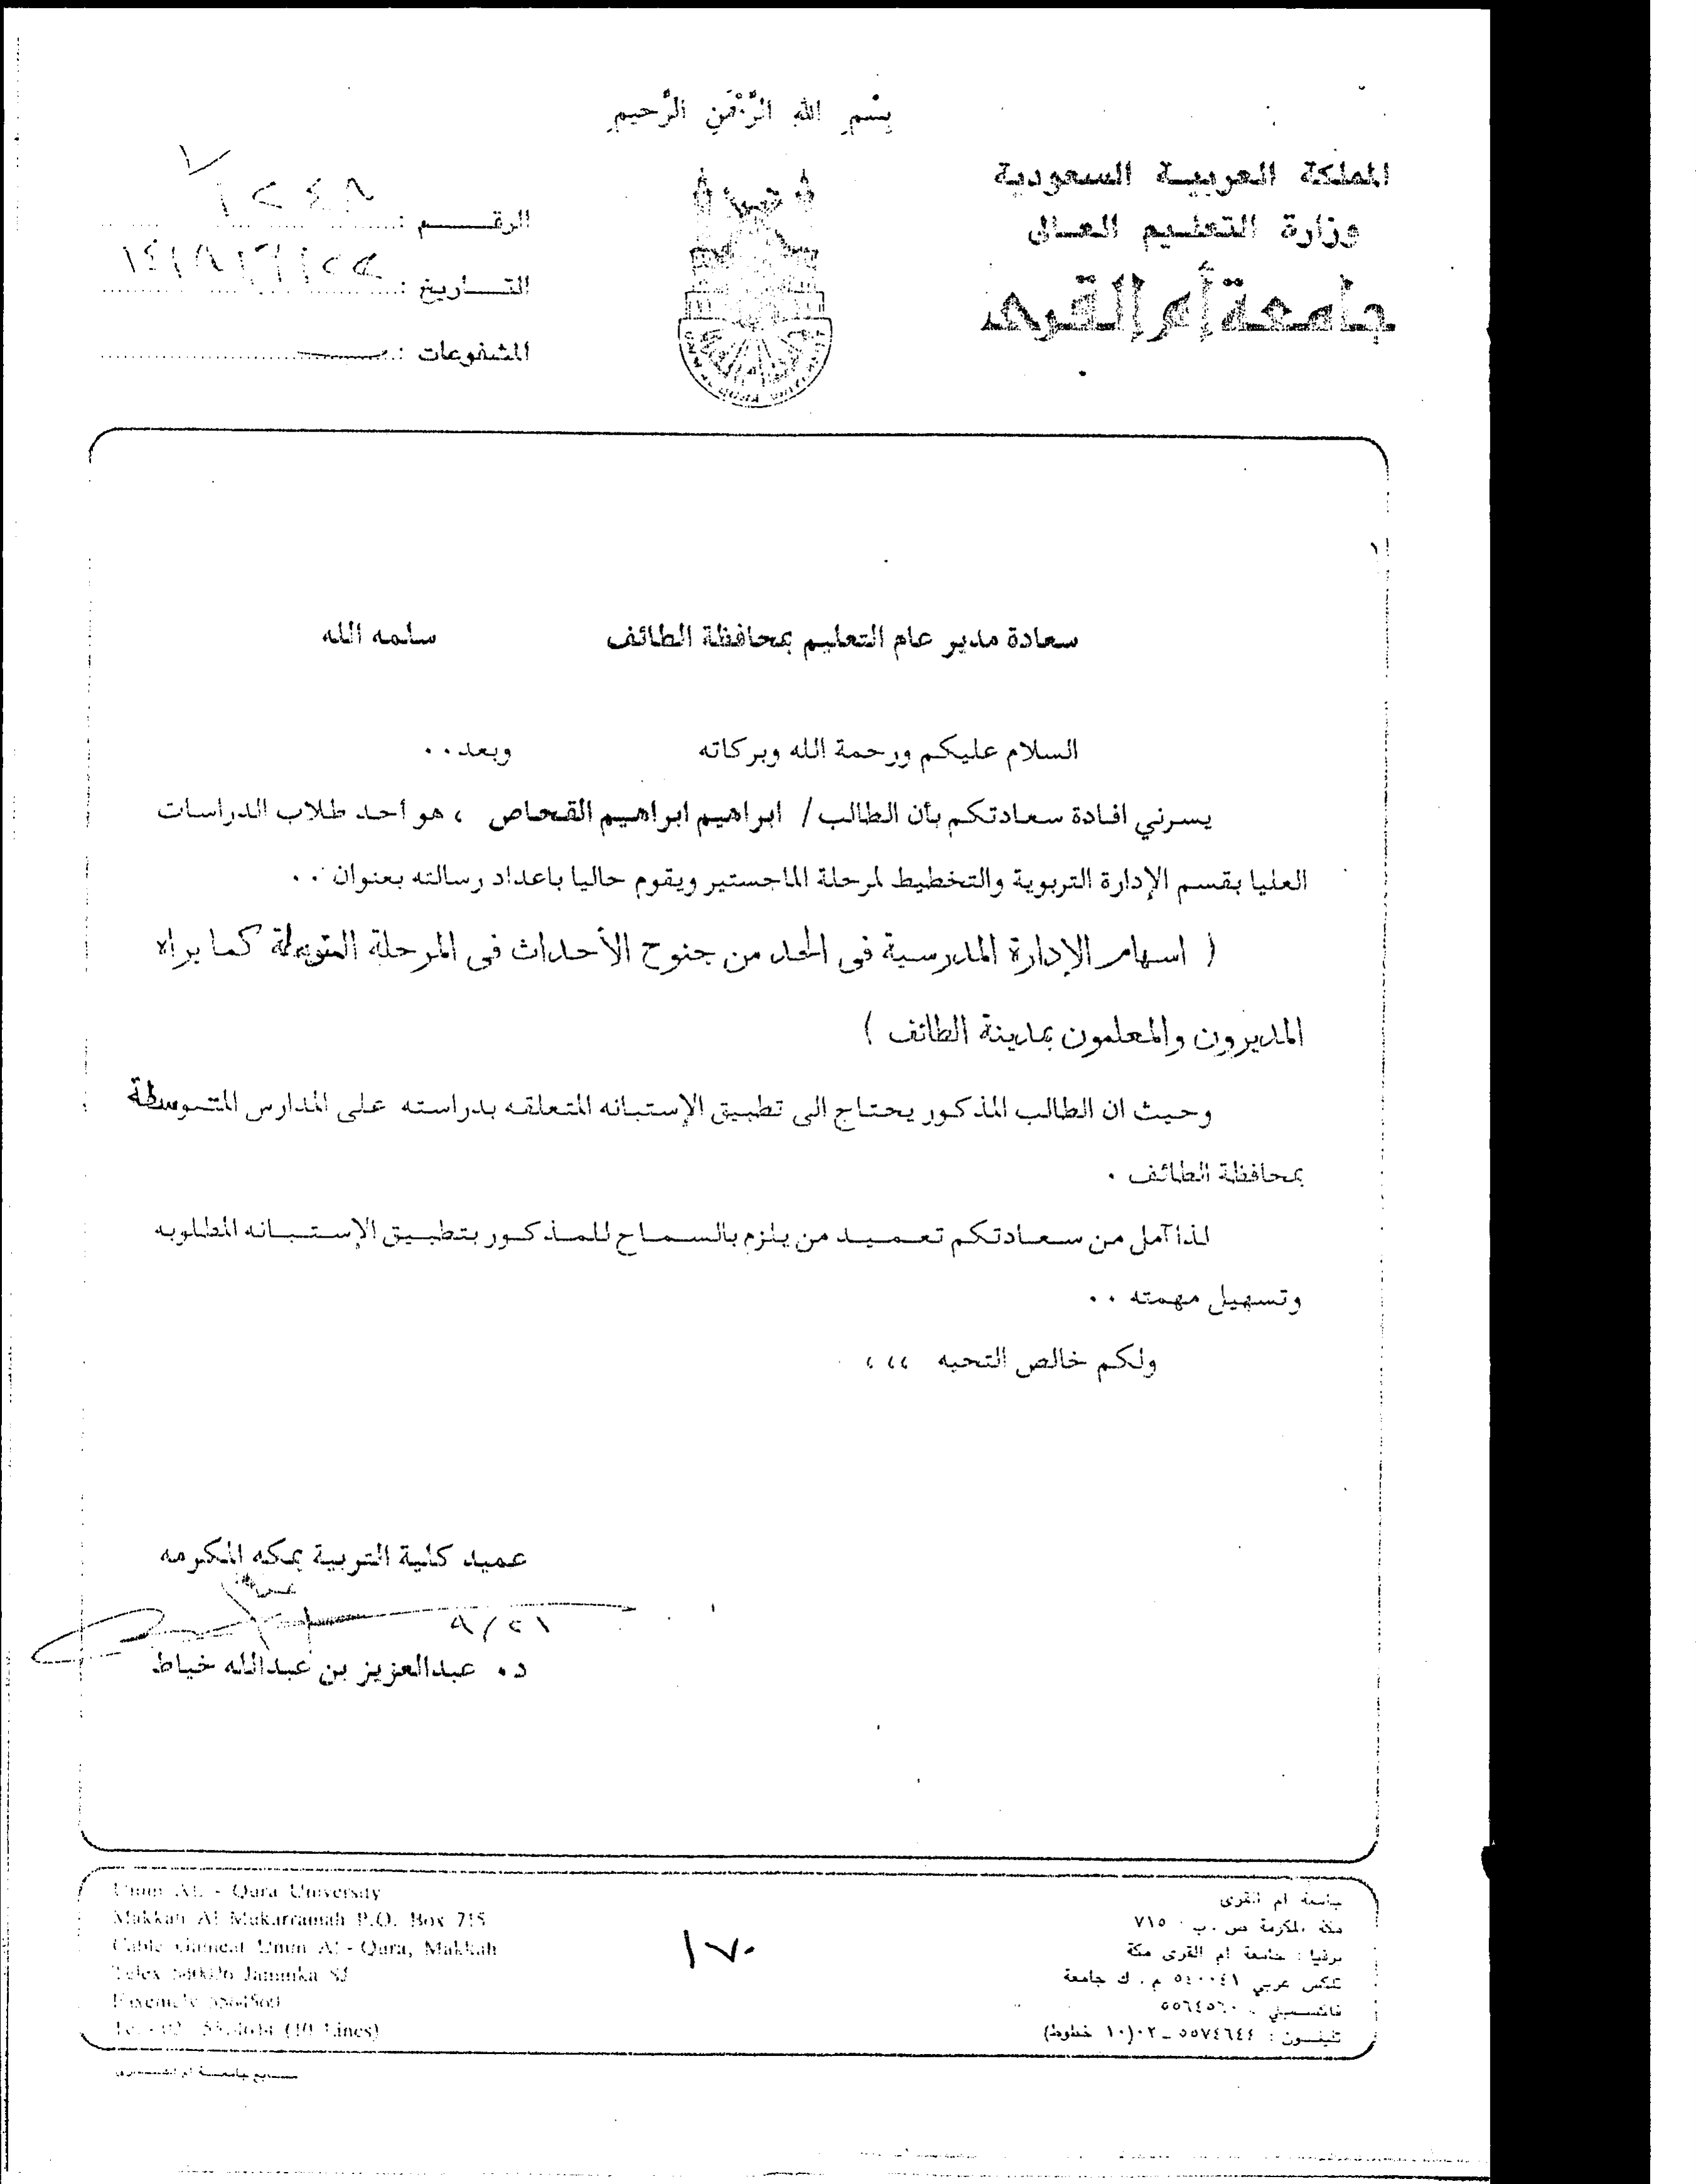 بسم الله الرحمن الرحيم
المملكة العربية السعودية
وزارة التعليم العالى
جامعة أم القرى
الرقم :
التاريخ :
المشفوعات :
سعادة مدير عام التعليم بمحافظة الطائف سلمه الله
السلام عليكم ورحمة الله وبركاته وبعد..
يسرني افادة سعادتكم بأن الطالب/ ابراهيم ابراهيم القحاص ، هو أحد طلاب الدراسات
العليا بقسم الإدارة التربوية والتخطيط لمرحلة الماجستير ويقوم حاليا باعداد رسالته بعنوان ..
( اسهام الإدارة المدرسية فى الحد من جنوح الأحداث فى المرحلة المتوسطة كما يراه
المديرون والمعلمون بمدينة الطائف )
وحيث ان الطالب المذكور يحتاج الى تطبيق الإستبانه المتعلقه بدراسته على المدارس المتوسطة
بمحافظة الطائف .
لذا آمل من سعادتكم تعميد من يلزم بالسماح للمذكور بتطبيق الإستبانه المطلوبه
وتسهيل مهمته ..
ولكم خالص التحيه ،،،
عميد كلية التربية بمكه المكرمه
٩/٢١
د. عبدالعزيز بن عبدالله خياط
جامعة ام القرى
مكة المكرمة ص . ب ٧١٥
برقيا : جامعة ام القرى مكة
تلكس عربي ٥٤٠٠٤١ م . ك جامعة
فاكسميلي ٥٥٦٤٥٦٠
تليفون : ٥٥٧٤٦٤٤ - ٠٢ (١٠ خطوط)
١٧٠
Umm AL - Qura University
Makkah Al Mukarramah P.O. Box 715
Cable Gameat Umm Al - Qura, Makkah
Telex Jammka SJ
(10 Lines)